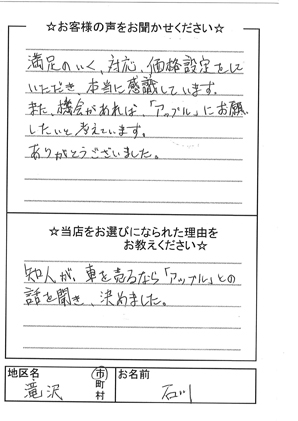 ☆お客様の声をお聞かせください☆
満足のいく、対応、価格設定をして
いただき、本当に感識しています。
また、機会があれば、「アップル」にお願い
したいと考えています。
ありがとうございました。
☆当店をお選びになられた理由を
お教えください☆
知人が、車を売るなら「アップル」との
話を聞き、決めました。
地区名 市町村 お名前
滝沢 石川